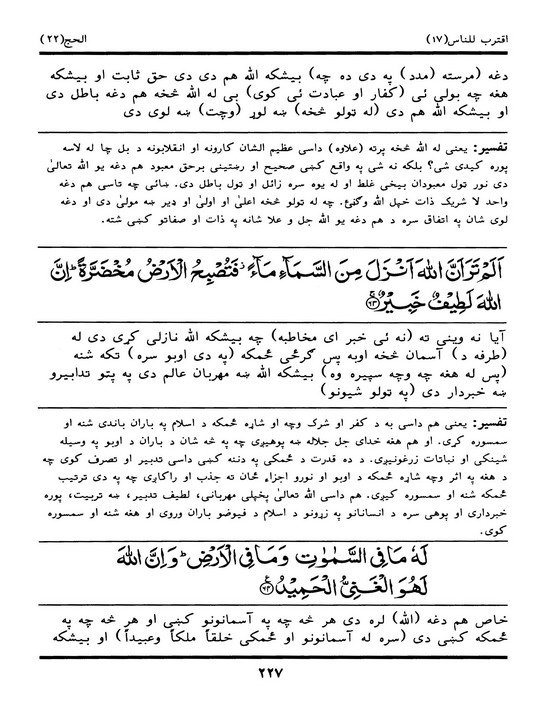 اقترب للناس(۱۷)
الحج(۲۲)
دغه (مرسته (مدد) په دی ده چه) بیشکه الله هم دی دی حق ثابت او بیشکه
هغه چه بولی ئی (کفار او عبادت ئی کوی) بی له الله څخه هم دغه باطل دی
او بیشکه الله هم دی (له ټولو څخه) ښه لوړ (وچت) ښه لوی دی
تفسیر: یعنی له الله څخه پرته (علاوه) داسی عظیم الشان کارونه او انقلابونه د بل چا له لاسه
پوره کیدی شی؟ بلکه نه شی په واقع کښی صحیح او رښتینی برحق معبود هم دغه یو الله تعالیٰ
دی نور ټول معبودان بیخی غلط او له یوه سره زائل او ټول باطل دی. ښائی چه تاسی هم دغه
واحد لا شریک ذات خپل الله وګڼئ. چه له ټولو څخه اعلیٰ او اولیٰ او ډیر ښه مولیٰ دی او دغه
لوی شان په اتفاق سره د هم دغه یو الله جل و علا شانه په ذات او صفاتو کښی شته.
اَلَمْ تَرَ اَنَّ اللهَ اَنْزَلَ مِنَ السَّمَآءِ مَآءً فَتُصْبِحُ الْاَرْضُ مُخْضَرَّةً اِنَّ
اللهَ لَطِيْفٌ خَبِيْرٌ ﴿۶۳﴾
آیا نه وینی ته (نه ئی خبر ای مخاطبه) چه بیشکه الله نازلی کړی دی له
(طرفه د) آسمان څخه اوبه پس ګرځی ځمکه (په دی اوبو سره) تکه شنه
(پس له هغه چه وچه سپیره وه) بیشکه الله ښه مهربان عالم دی په پتو تدابیرو
ښه خبردار دی (په ټولو شیونو)
تفسیر: یعنی هم داسی به د کفر او شرک وچه او شاړه ځمکه د اسلام په باران باندی شنه او
سمسوره کړی. او هم هغه خدای جل جلاله ښه پوهیږی چه په څه شان د باران د اوبو په وسیله
شینکی او نباتات زرغونیږی. د ده قدرت د ځمکی په دننه کښی داسی تدبیر او تصرف کوی چه
د هغه په اثر وچه شاړه ځمکه د اوبو او نورو اجزاء ځان ته جذب او راکاږی چه په دی ترتیب
ځمکه شنه او سمسوره کیږی. هم داسی الله تعالیٰ پخپلی مهربانی، لطیف تدبیر، ښه تربیت، پوره
خبرداری او پوهی سره د انسانانو په زړونو د اسلام د فیوضو باران وروی او هغه شنه او سمسوره
کوی.
لَهٗ مَا فِى السَّمٰوٰتِ وَمَا فِى الْاَرْضِ وَاِنَّ اللهَ
لَهُوَ الْغَنِىُّ الْحَمِيْدُ ﴿۶۴﴾
خاص هم دغه (الله) لره دی هر څه چه په آسمانونو کښی او هر څه چه په
ځمکه کښی دی (سره له آسمانونو او ځمکی خلقاً ملکاً وعبیداً) او بیشکه
۲۲۷